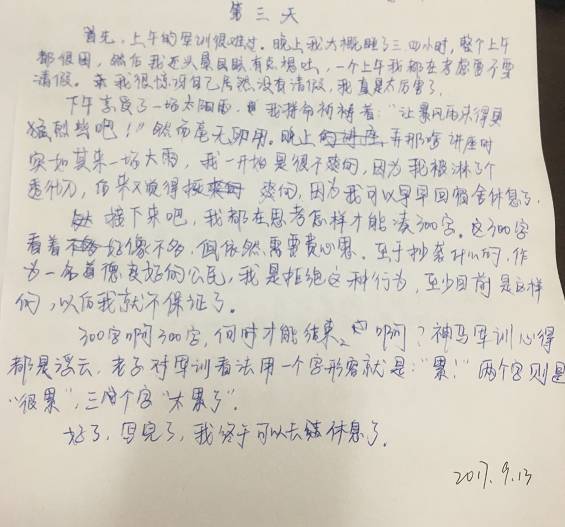 第三天
首先，上午的军训很难过。晚上我大概睡了三四小时，整个上午
都很困，然后我还头晕目眩有点想吐，一个上午我都在考虑要不要
请假。我很惊讶自己居然没有请假，我真是太厉害了。
下午享受了一场太阳雨，我拼命祈祷着：“让暴风雨来得更
猛烈些吧！”然而毫无卵用。晚上弄那啥讲座时
突如其来一场大雨，我一开始是很不爽的，因为我被淋了个
透彻，后来又觉得爽的，因为我可以早早回宿舍休息了。
接下来吧，我都在思考怎样才能凑300字。这300字
看着好像不多，但依然需要费心思。至于抄袭什么的，作
为一名道德良好的公民，我是拒绝这种行为，至少目前是这样
的，以后我就不保证了。
300字啊300字，何时才能结束啊？神马军训心得
都是浮云，老子对军训看法用一个字形容就是：“累！”两个字则是
“很累”，三个字“太累了”。
好了，写完了，我终于可以去休息了。
2017.9.13